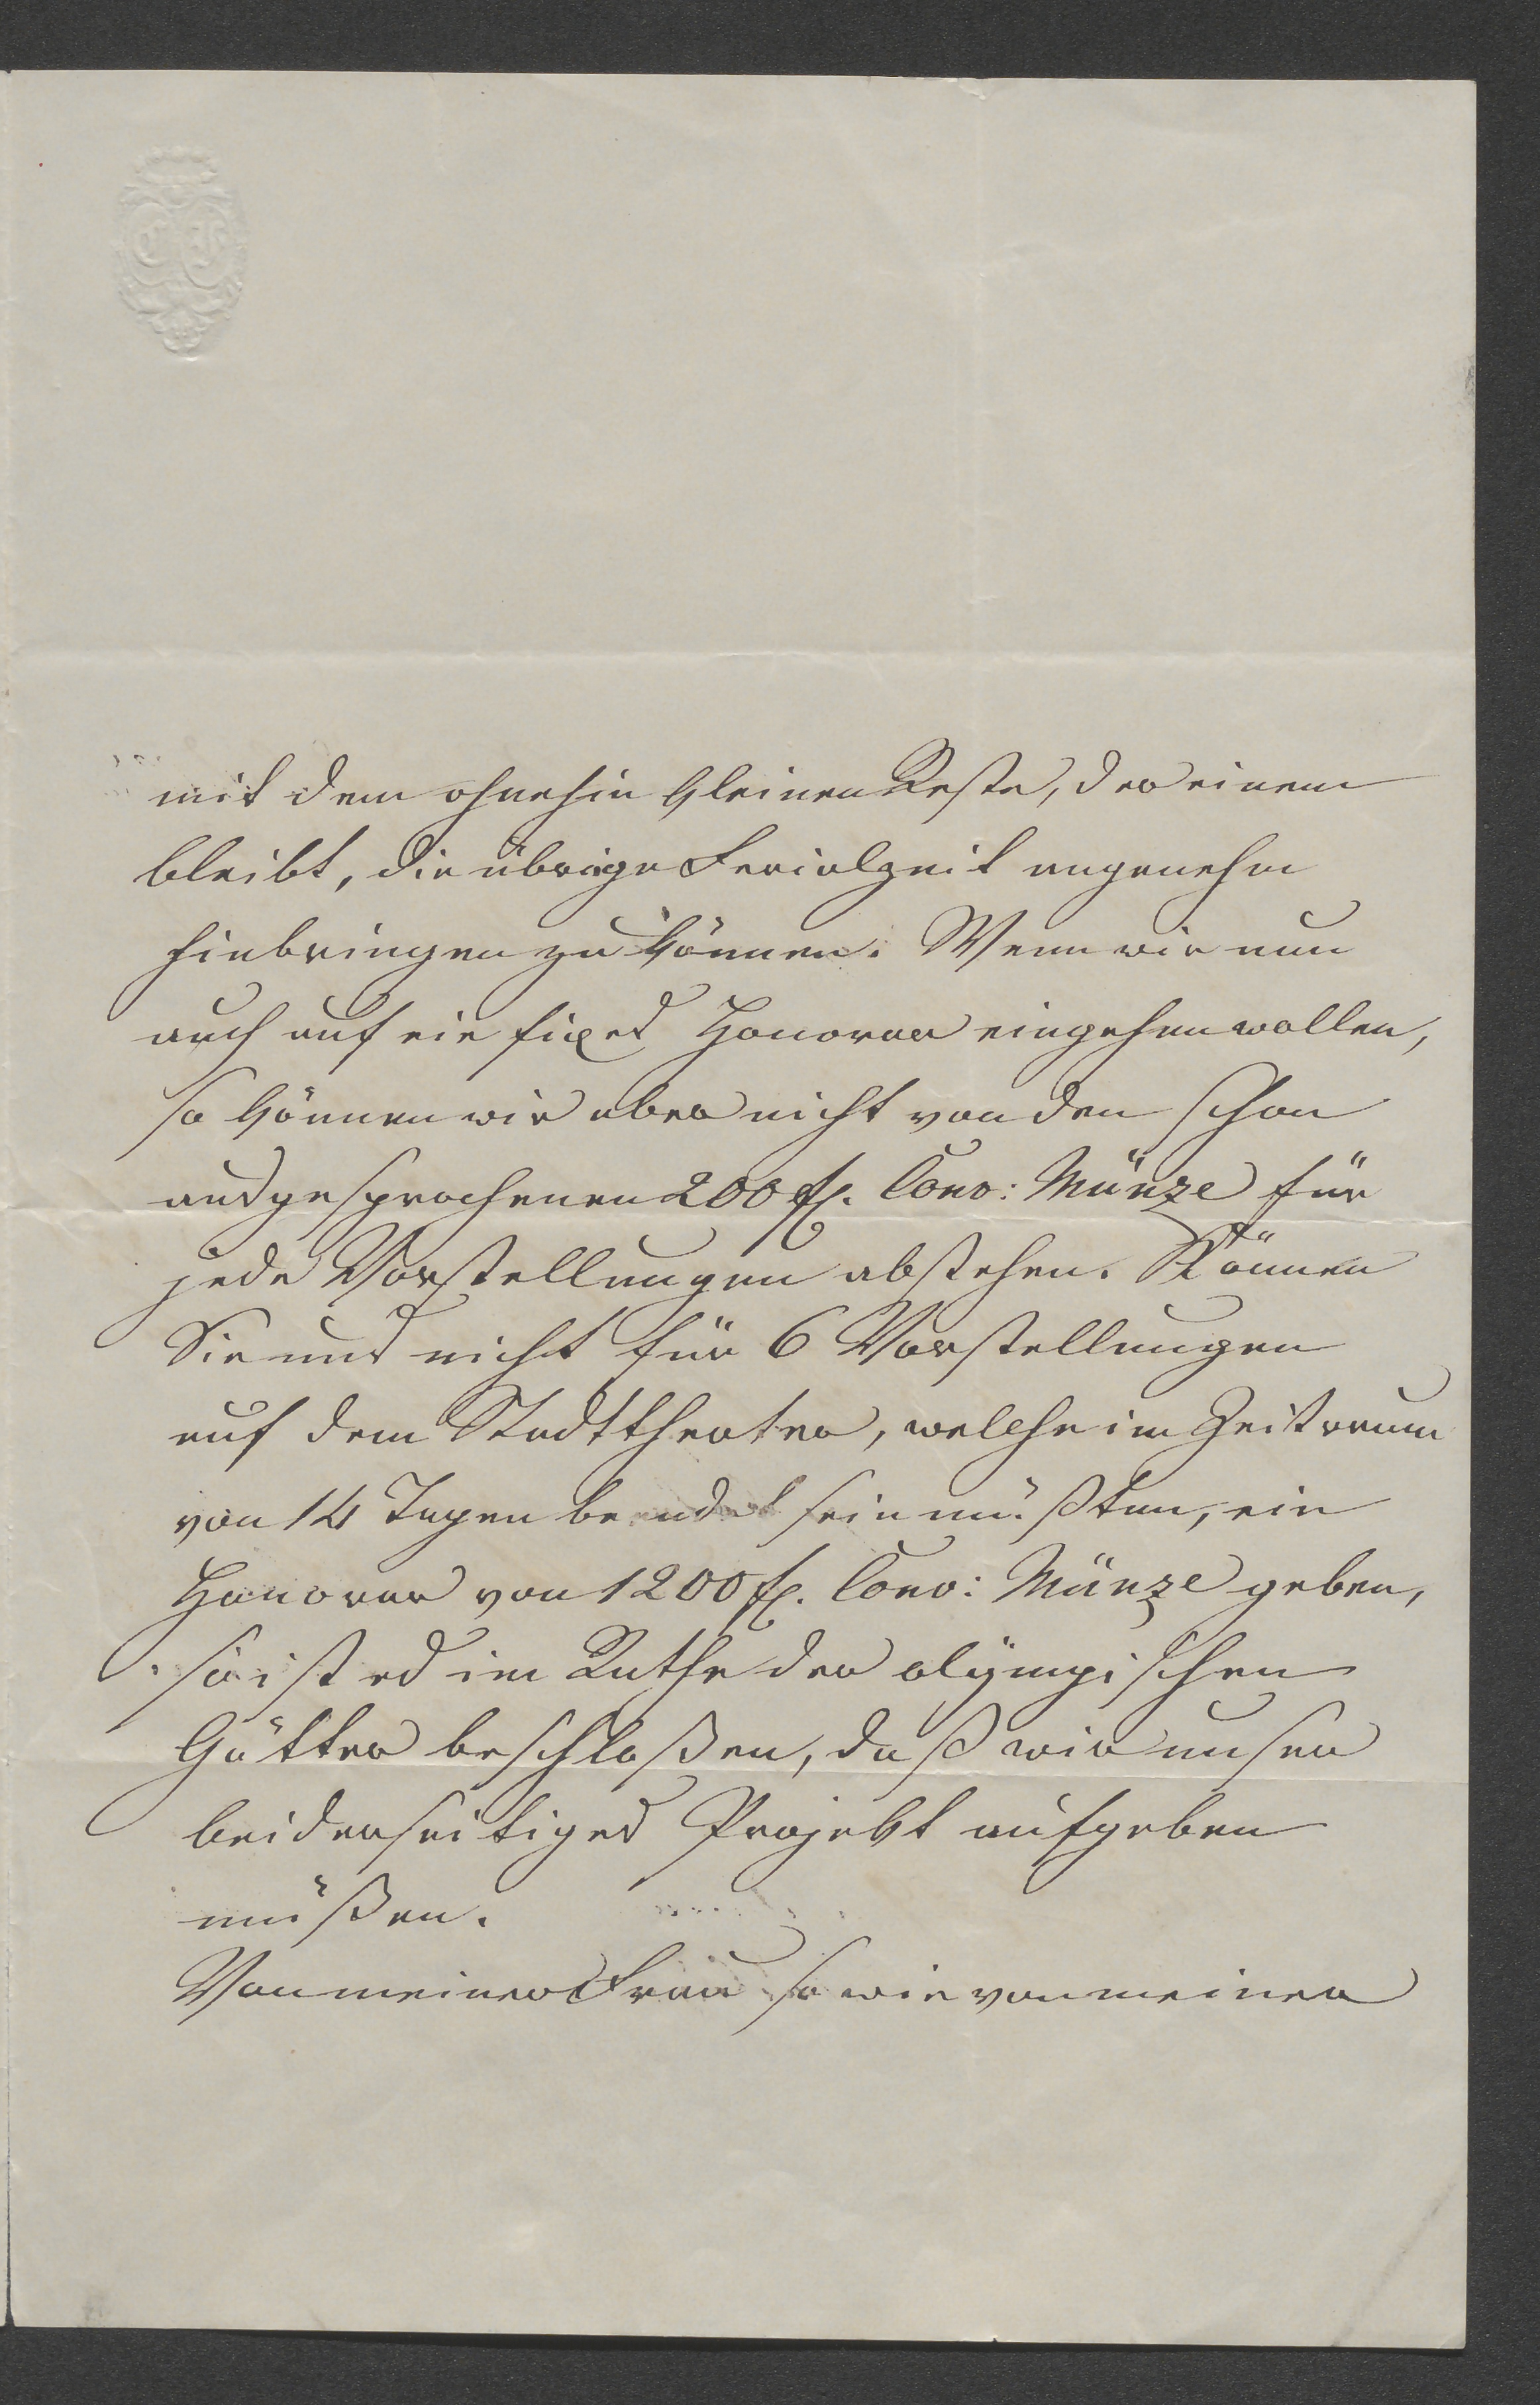 mit dem ohnehin kleinen Reste, der einem
bleibt, die übrige Ferialzeit angenehm
hinbringen zu können. Wenn wir nun
auch auf ein fixes Honorar eingehen wollen,
so können wir aber nicht von den schon
ausgesprochenen 200 fl. Conv: Münze für
jede Vorstellungen abstehen. Können
Sie uns nicht für 6 Vorstellungen
auf dem Stadttheater, welche im Zeitraum
von 14 Tagen beendet sein müßten, ein
Honorar von 1200 fl. Conv: Münze geben,
so ist es im Rathe der olÿmpischen
Götter beschloßen, daß wir unser
beiderseitiges Projekt aufgeben
müßen.
Von meiner Frau so wie von meiner